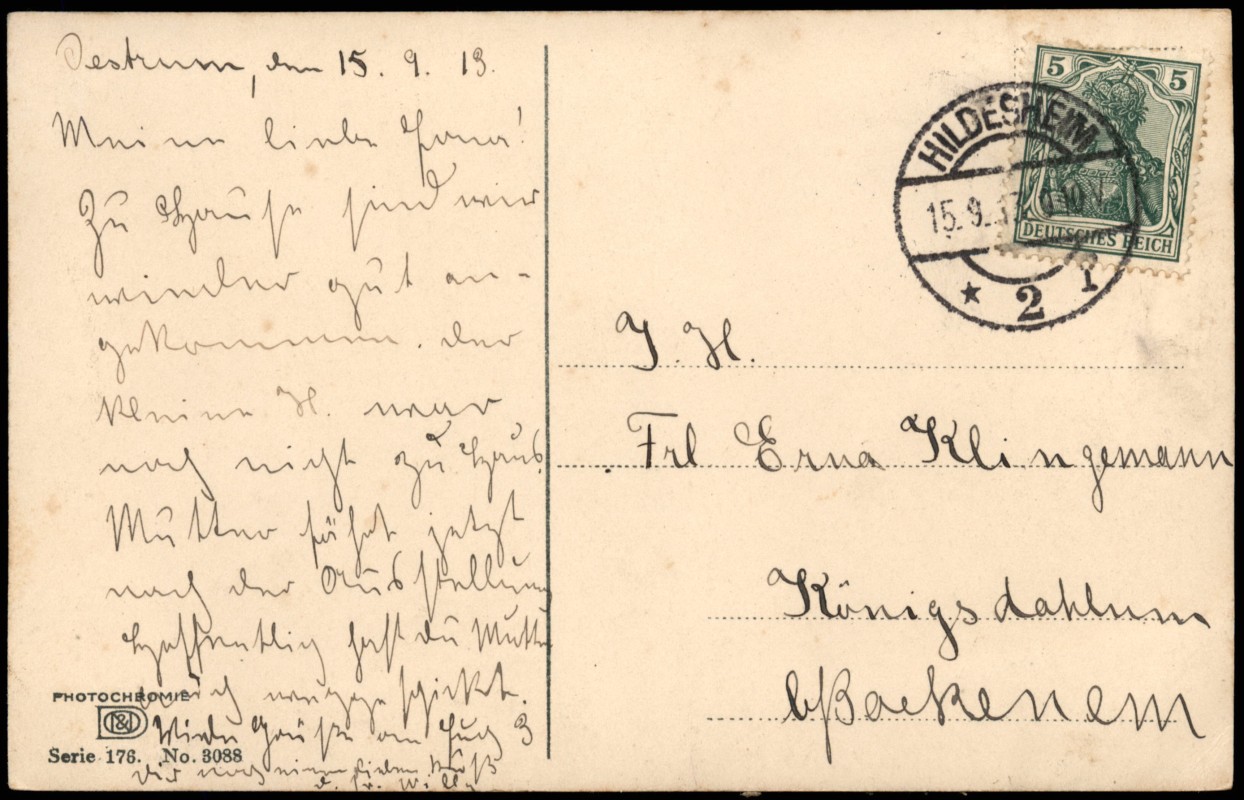 Oestrum, den 15. 9. 13.
Meine liebe Erna!
Zu Hause sind wir
wieder gut an-
gekommen. der
kleine H. war
noch nicht zu Haus
Mutter fährt jetzt
nach der Ausstellung
Hoffentlich hast du Mutter
weggeschickt.
Viele Grüße an Euch 3
Dir noch einen lieben Kuß
d. Fr. Willy
PHOTOCHROMIE
Serie 176. No. 3088
HILDESHEIM
15.9.13 9-10 V.
* 2 f
5 5
DEUTSCHES REICH
J. H.
Frl Erna Klingemann
Königsdahlum
b/Bockenem